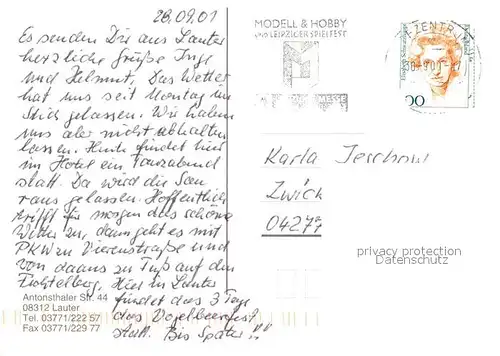 28.09.01
Es senden Dir aus Lauter
herzliche Grüße Inge
und Helmut. Das Wetter
hat uns seit Montag im
Stich gelassen. Wir haben
uns aber nicht abhalten
lassen. Heute findet hier
im Hotel ein Tanzabend
statt. Da wird die Sau
raus gelassen. Hoffentlich
trifft für morgen das schöne
Wetter zu, dann geht es mit
PKW zu Vierenstraße und
von da aus zu Fuß auf den
Fichtelberg. Hier in Lauter
findet das 3 Tage
das Vogelbeerfest
statt. Bis Später!!
Antonsthaler Str. 44
08312 Lauter
Tel. 03771/222 57
Fax 03771/229 77
MODELL & HOBBY
UND LEIPZIGER SPIELFEST
MESSE
ZENTRUM
Karla Jeschow
Zwick
0427
privacy protection
Datenschutz